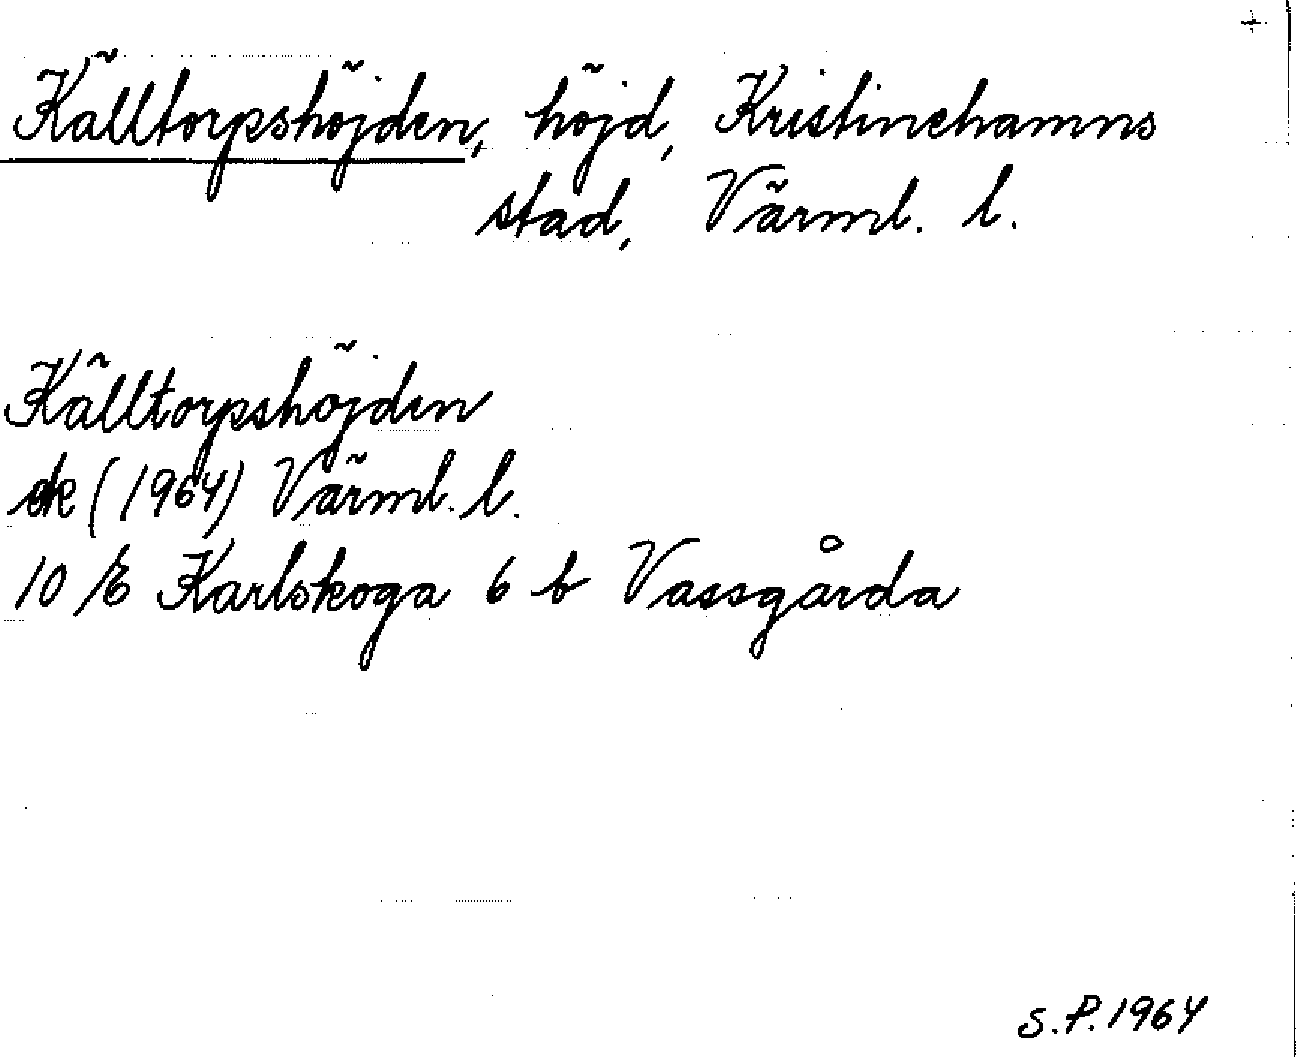 +
Källtorpshöjden, höjd, Kristinehamns
stad, Värml. l.
Källtorpshöjden
ek (1964) Värml. l.
10 E Karlskoga 6 b Vassgårda
S.P. 1964